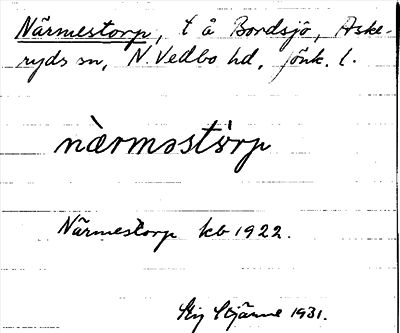 Närmestorp, t å Bordsjö, Aske-
ryds sn, N. Vedbo hd, Jönk. l.
nàrməstòrp
Närmestorp kb 1922.
Stig Stjärne 1931.